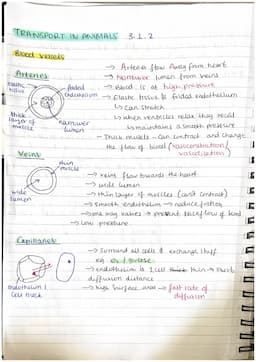 TRANSPORT IN ANIMALS 3.1.2
Blood vessels
Arteries
elastic tissue
folded endothelium
thick layer of muscle
narrower lumen
→ Arteries flow Away from heart
→ Narrower lumen than veins
→ Blood is at high pressure
→ Elastic tissue & folded endothelium
↳ Can stretch
↳ when ventricles relax they recoil
↳ maintains a smooth pressure
→ Thick muscle - can contract and change
the flow of blood (vasoconstriction/
vasodilation)
Veins
thin muscle
wide lumen
→ Veins flow towards the heart
→ wide lumen
→ thin layer of muscles (can't contract)
→ smooth endothelium → reduce friction
→ one way valves → prevent backflow of blood
→ low pressure
Capillaries
endothelium 1 cell thick
→ Surround all cells & exchange stuff
eg O2 / glucose
→ endothelium is 1 cell thin → short
diffusion distance
→ high surface area → fast rate of
diffusion